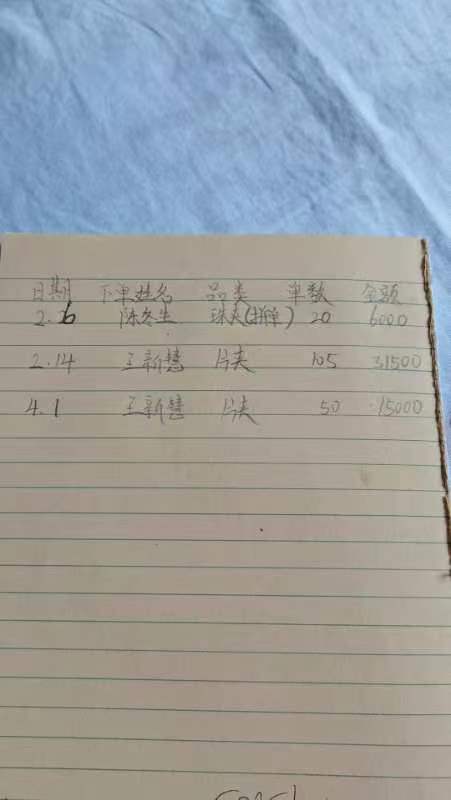 日期 下单姓名 品类 单数 金额
2.6 陈冬生 珠夹(拼单) 20 6000
2.14 王新慧 片夹 105 31500
4.1 王新慧 片夹 50 15000